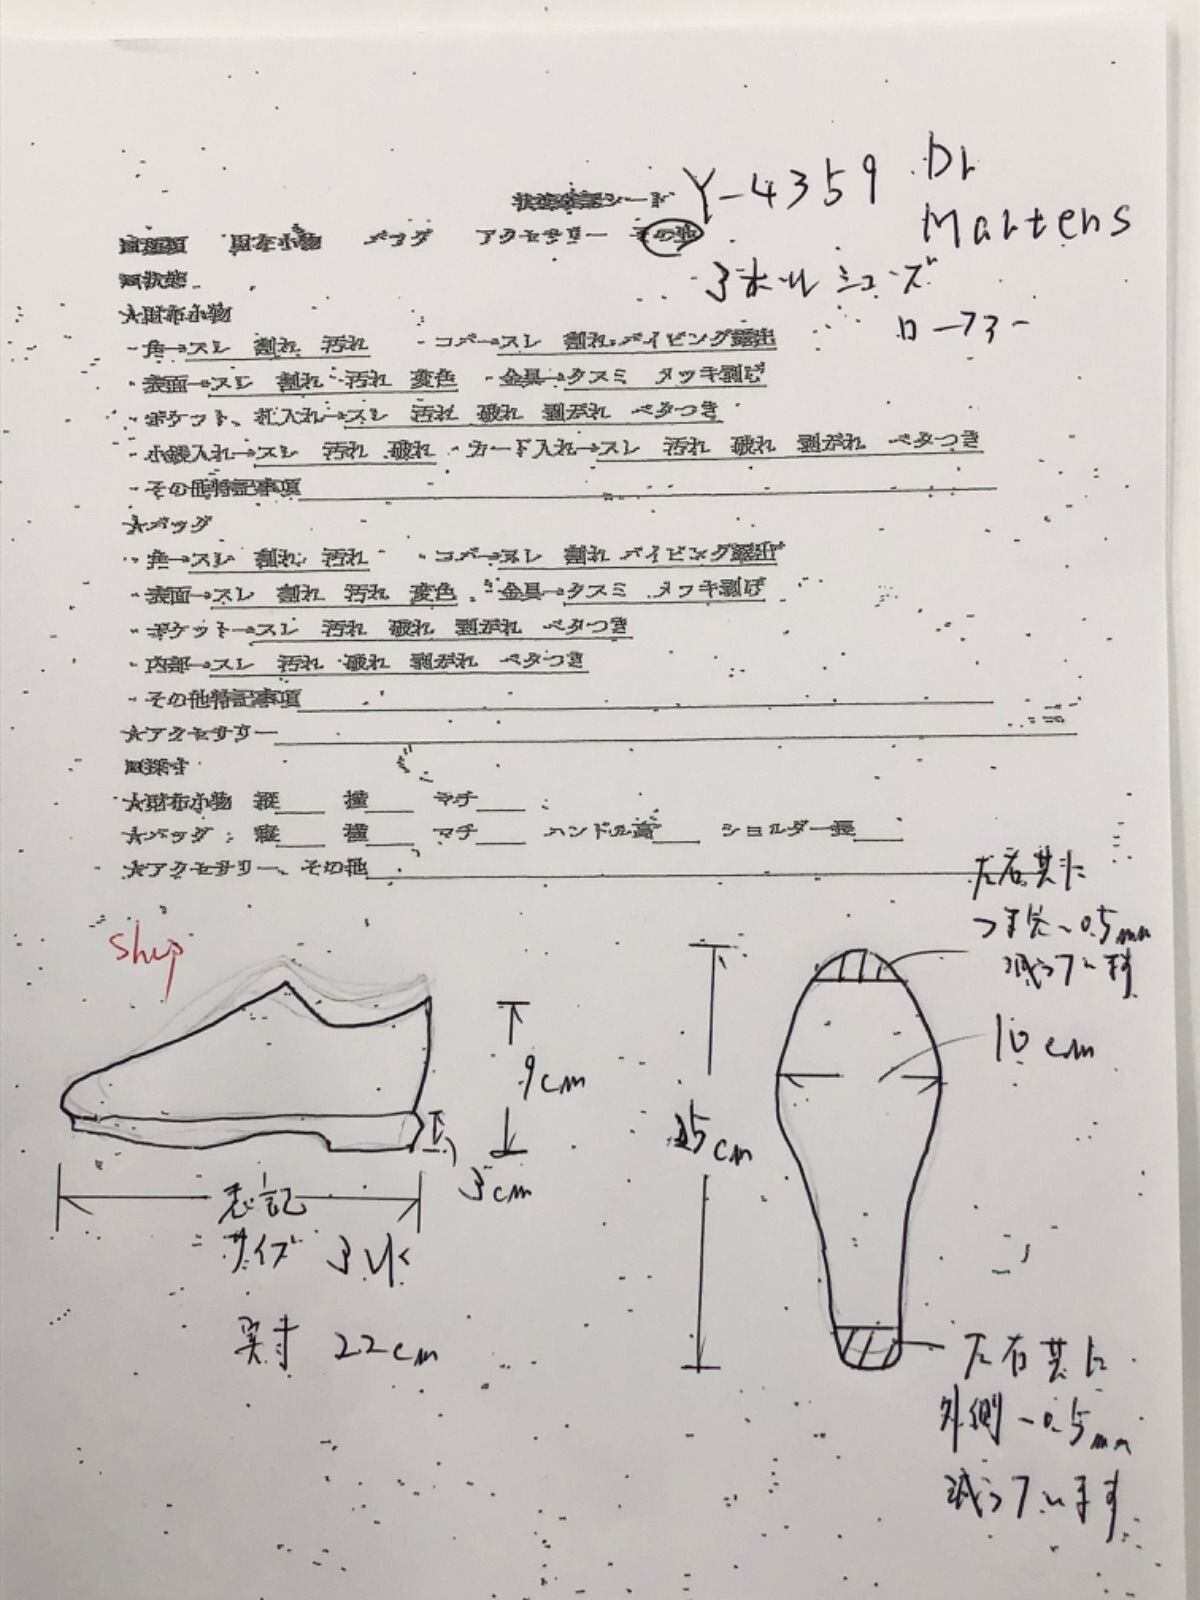 状態確認シート Y-4359 Dr Martens
財布小物 バッグ アクセサリー その他
3ホールシューズ
■状態
ローファー
★財布小物
・角→スレ 割れ 汚れ ・コバ→スレ 割れ パイピング露出
・表面→スレ 割れ 汚れ 変色 ・金具→クスミ メッキ剥げ
・ポケット、札入れ→スレ 汚れ 破れ 剥がれ ベタつき
・小銭入れ→スレ 汚れ 破れ ・カード入れ→スレ 汚れ 破れ 剥がれ ベタつき
・その他特記事項
★バッグ
・角→スレ 割れ 汚れ ・コバ→スレ 割れ パイピング露出
・表面→スレ 割れ 汚れ 変色 ・金具→クスミ メッキ剥げ
・ポケット→スレ 汚れ 破れ 剥がれ ベタつき
・内部→スレ 汚れ 破れ 剥がれ ベタつき
・その他特記事項
★アクセサリー
■採寸
★財布小物 縦 横 マチ
★バッグ 縦 横 マチ ハンドル高 ショルダー長
★アクセサリー、その他
左右共に
つま先〜0.5mm
減っています
9cm
3cm
表記
サイズ 3UK
実寸 22cm
10cm
25cm
左右共に
外側〜0.5mm
減っています